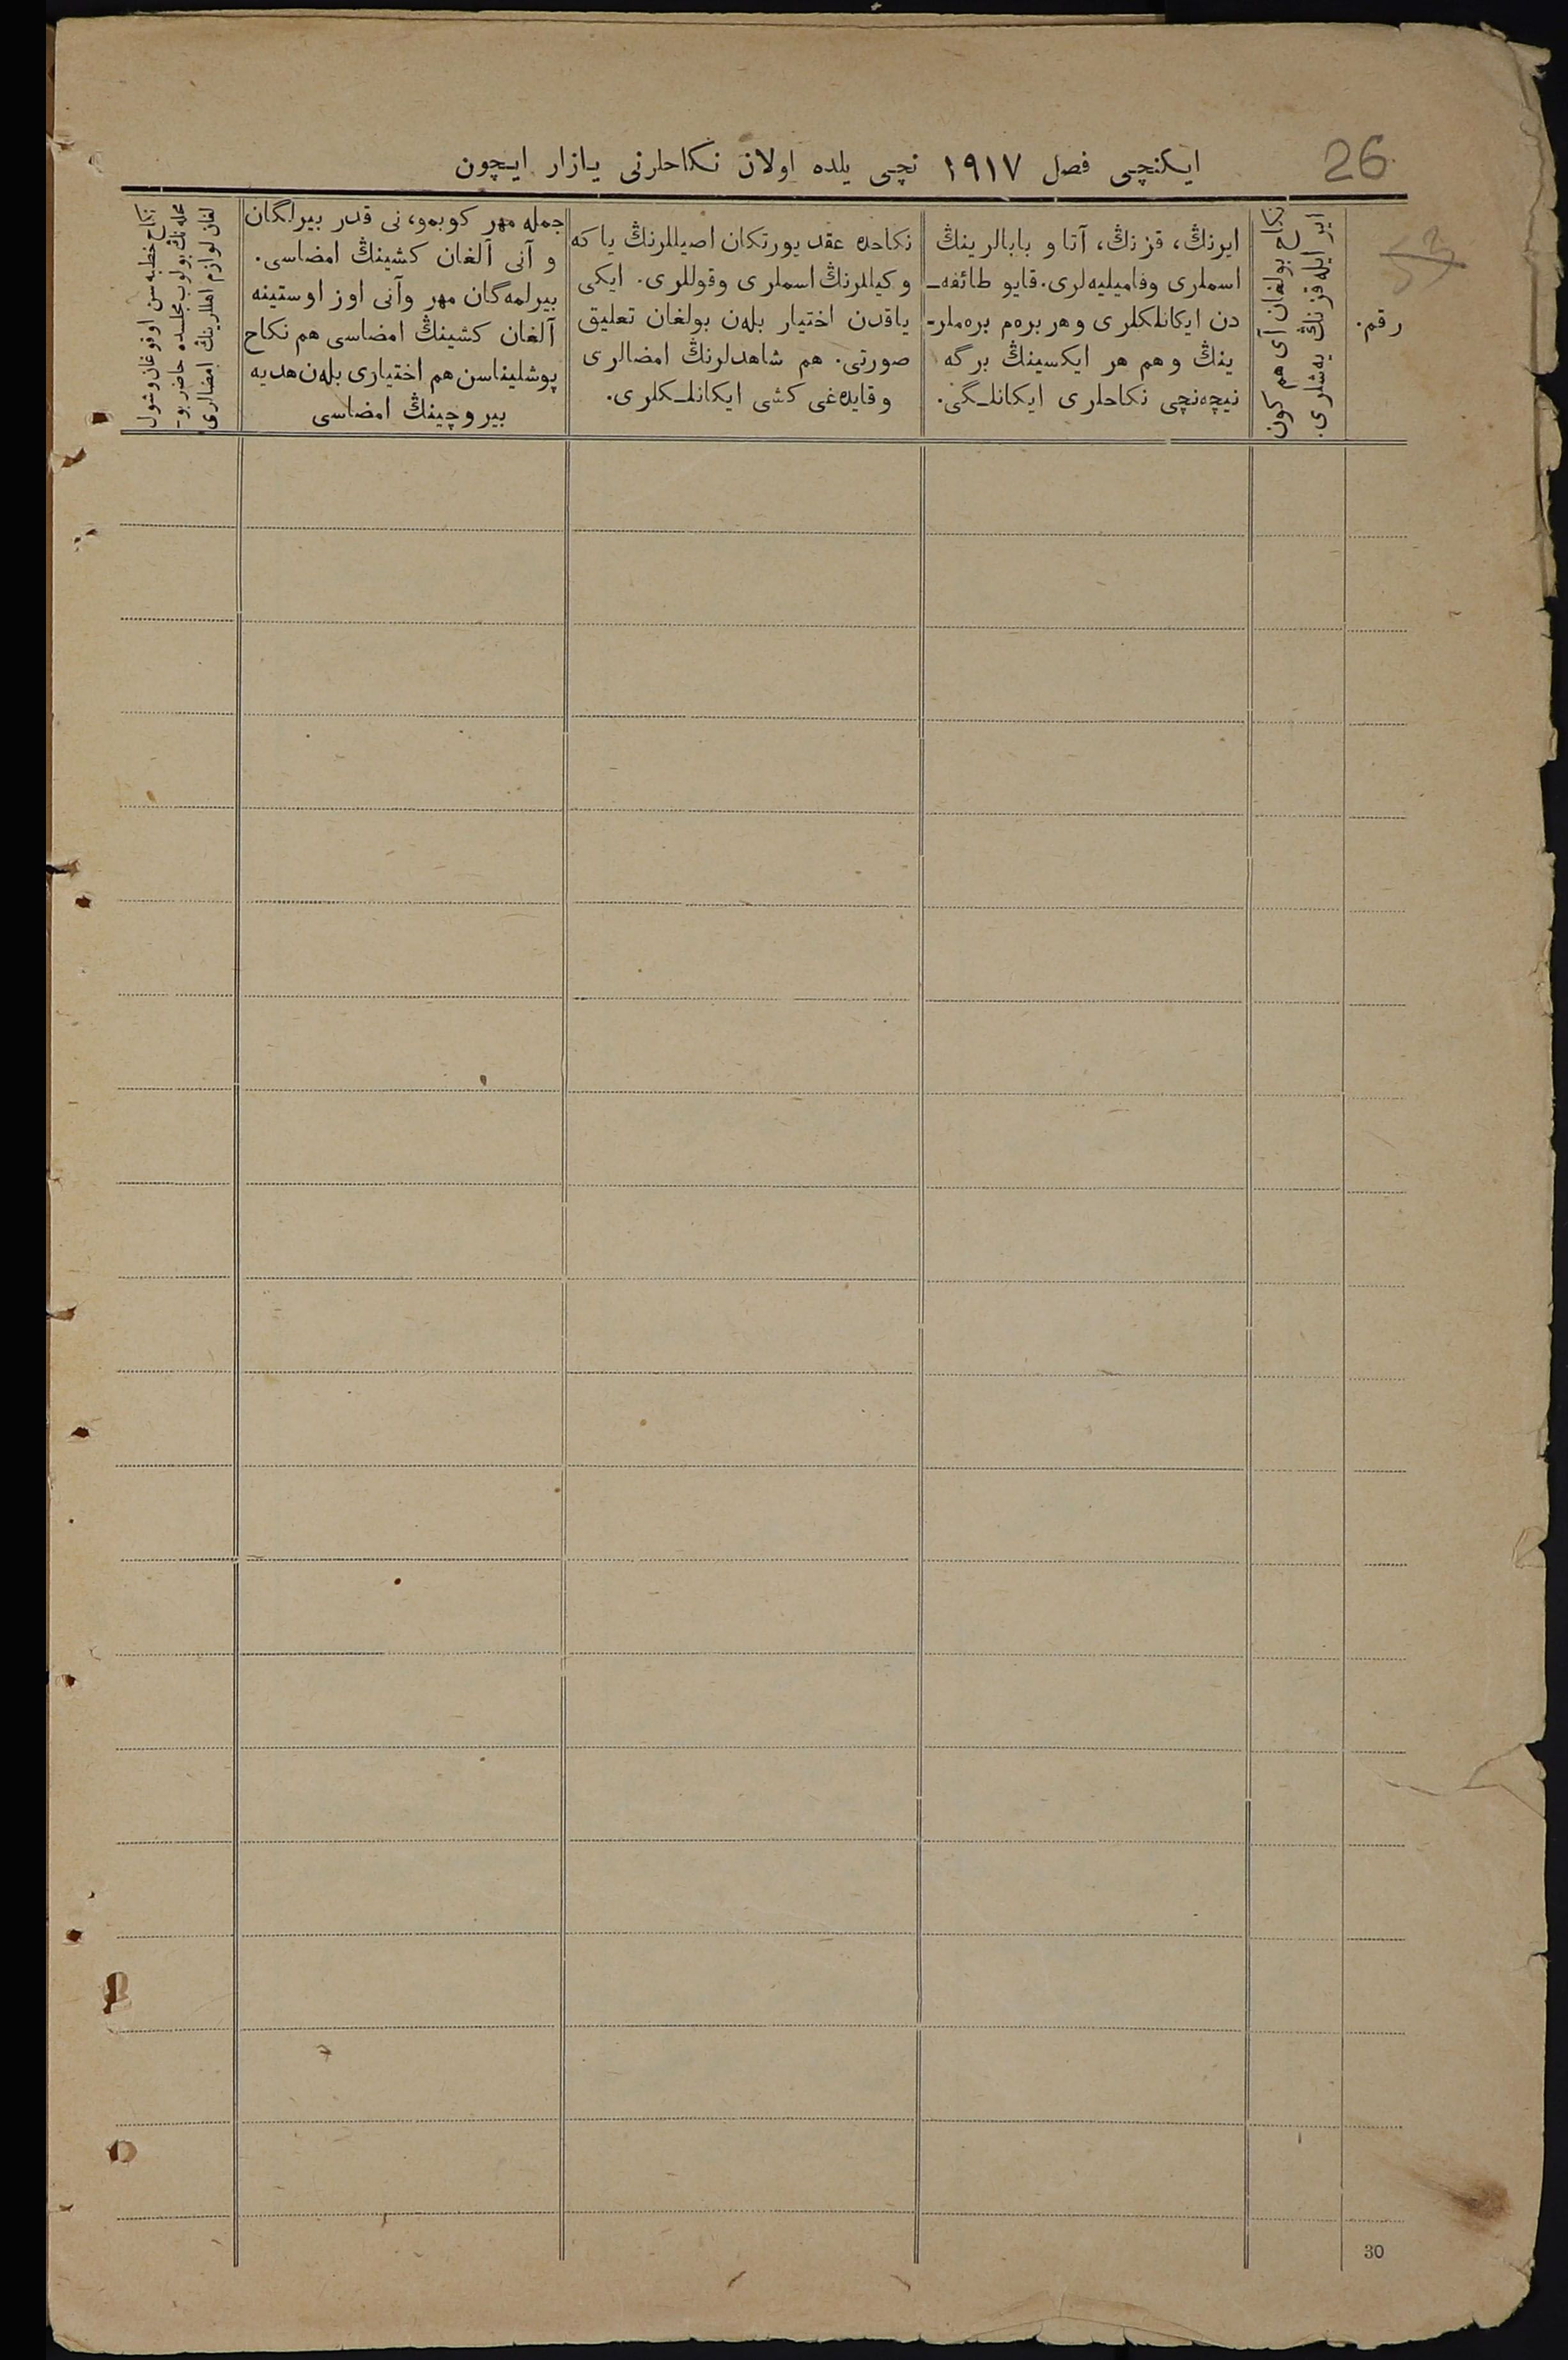 26
ایکنچی فصل ۱۹۱۷ نچی یلده اولان نکاحلرنی یازار ایچون
53
رقم.
نکاح بولغان آی هم کون
ایر ایله قزنڭ یه‌شلری.
ایرنڭ، قزنڭ، آتا و بابالرینڭ
اسملری وفامیلیه‌لری. قایو طائفه‌ـ
دن ایکانلکلری وهر بره‌م بره‌ملرـ
ینڭ وهم هر ایکسینڭ برگه
نیچه‌نچی نکاحلری ایکانلـگی.
نکاحده عقد یورتکان اصیللرنڭ یا که
وکیللرنڭ اسملری وقوللری. ایکی
یاقدن اختیار بله‌ن بولغان تعلیق
صورتی. هم شاهدلرنڭ امضالری
وقایده‌غی کشی ایکانلـکلری.
جمله مهر کوبمو، نی قدر بیرلگان
و آنی آلغان کشینڭ امضاسی.
بیرلمه‌گان مهر وآنی اوز اوستینه
آلغان کشینڭ امضاسی هم نکاح
پوشلیناسن هم اختیاری بله‌ن هدیه
بیروچینڭ امضاسی
نکاح خطبه‌سن اوقوغان وشول
محله‌نڭ بولوب مجلسده حاضر بو۔
لغان لوازم اهللرینڭ امضالری
30